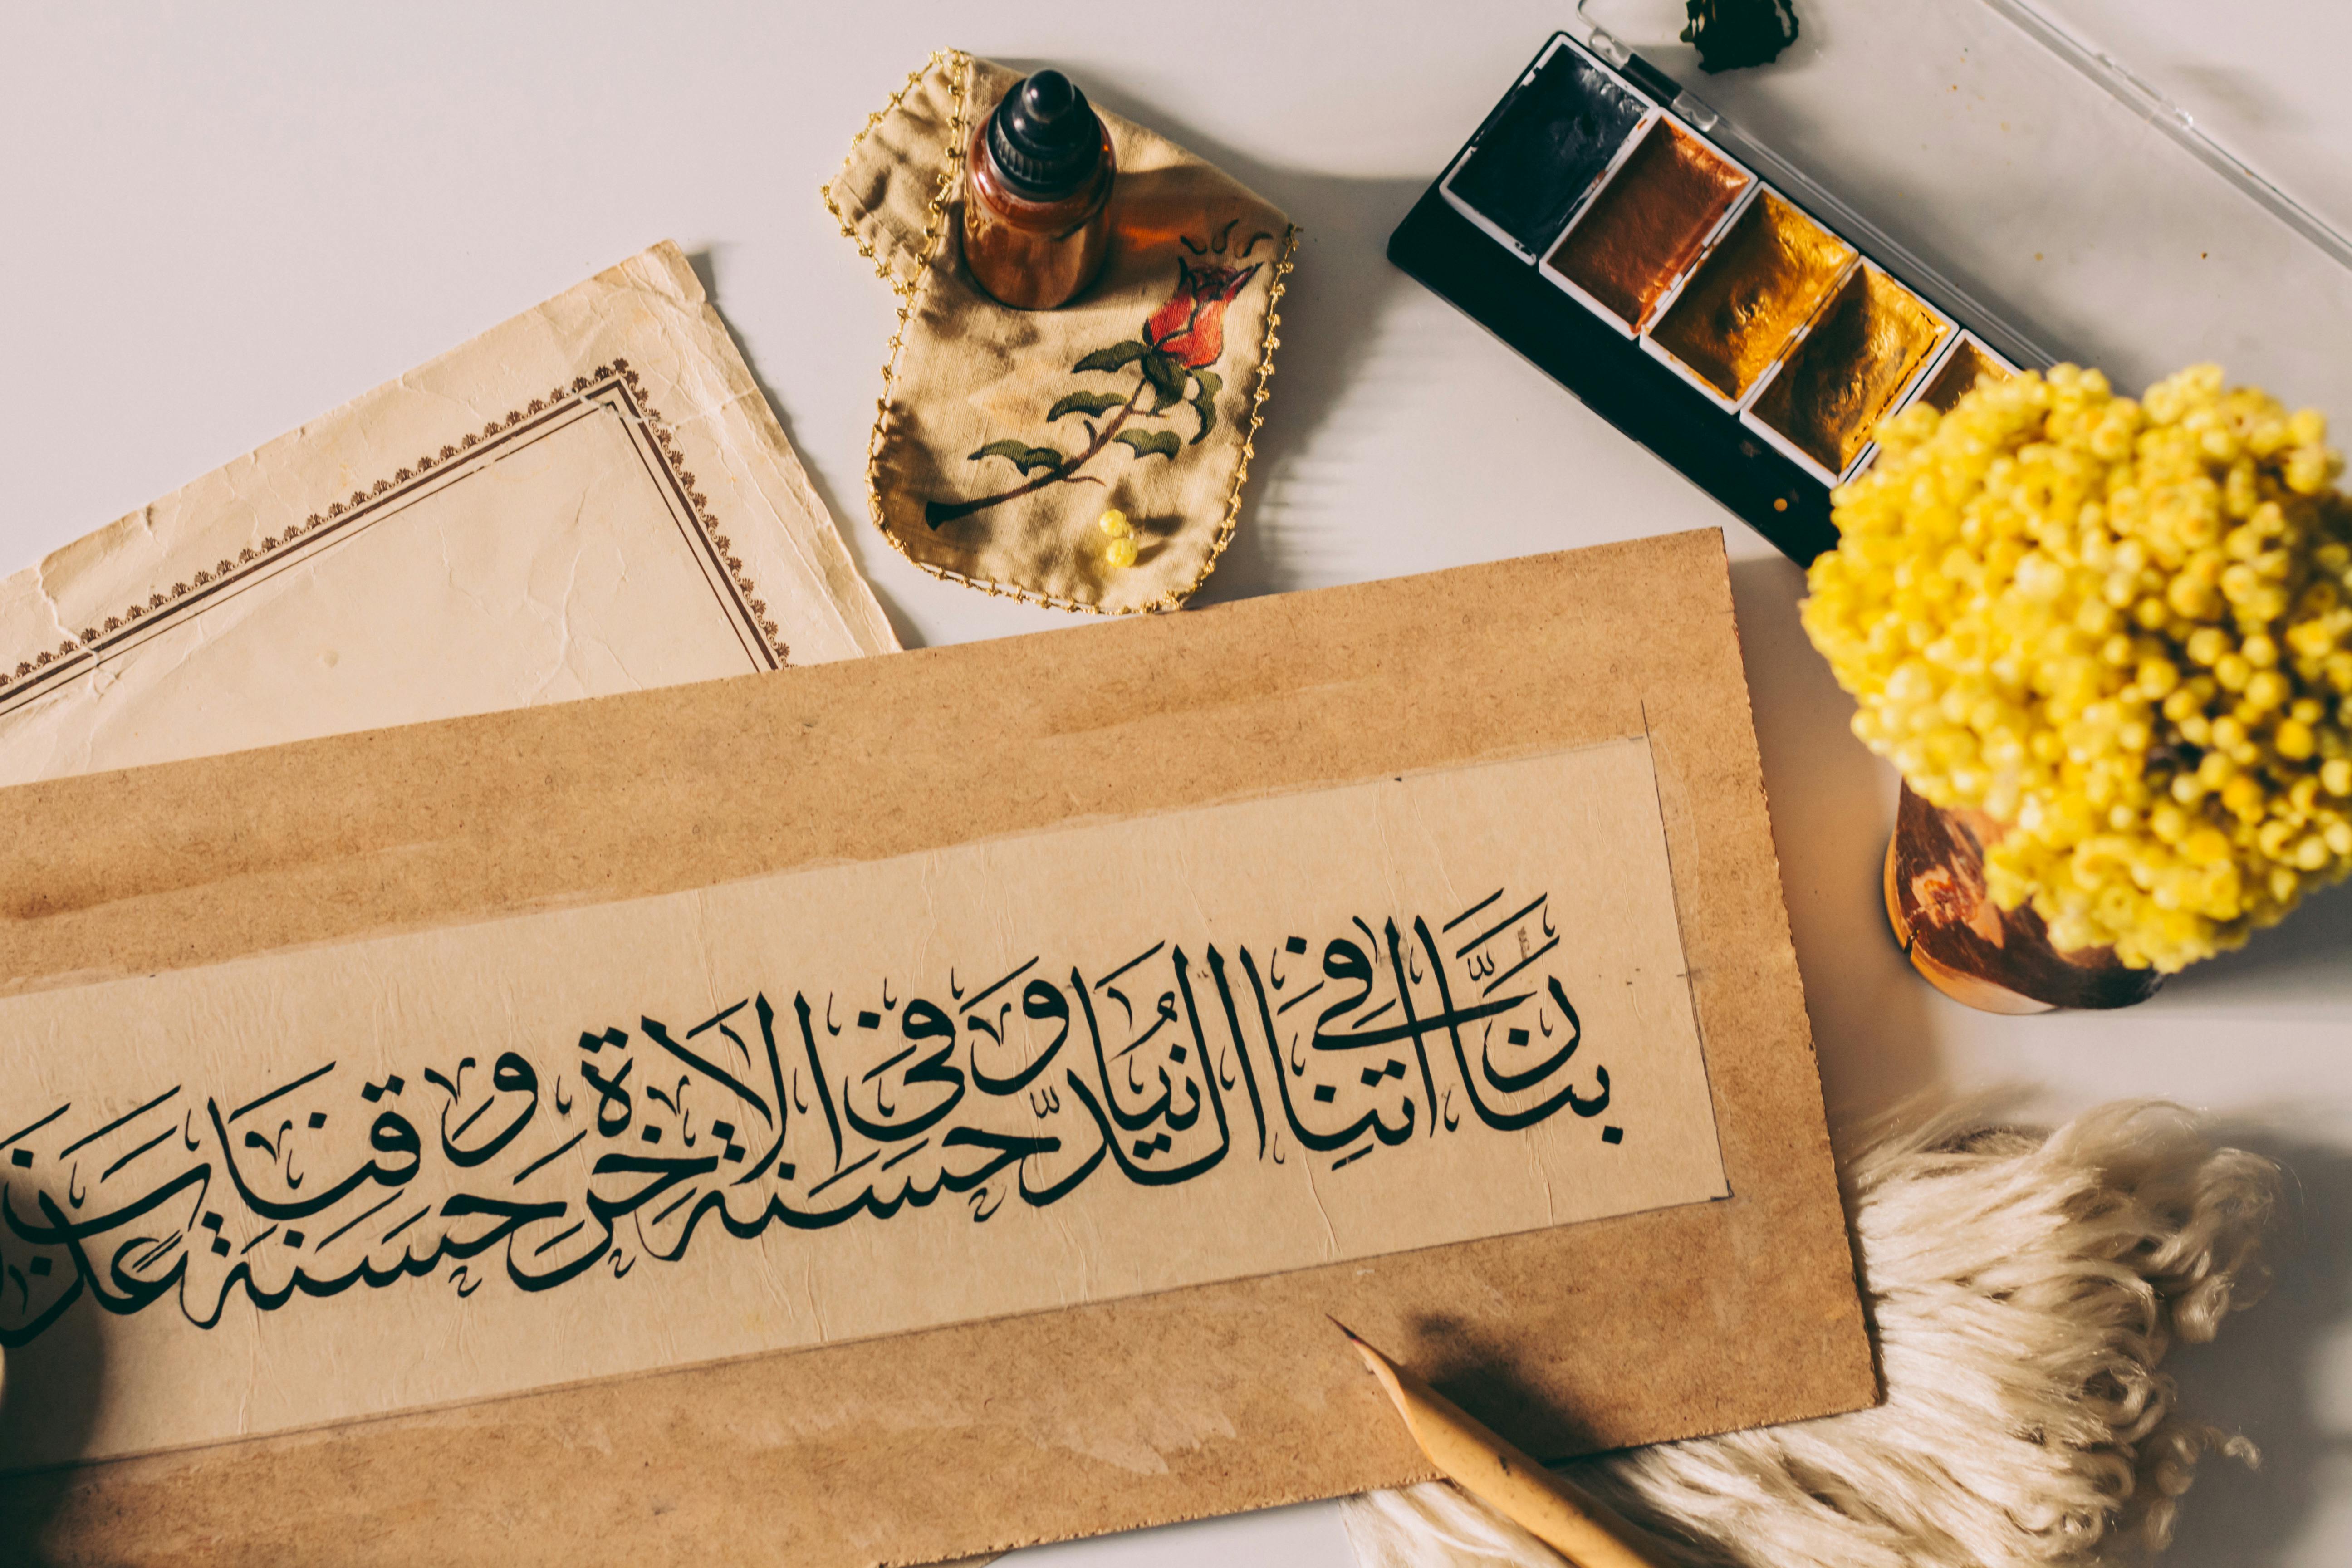 رَبَّنَا اتِنَا فِي الدُّنيَا حَسَنَة وَفِي الاخِرَة حَسَنَة وَقِنَا عَذَابَ